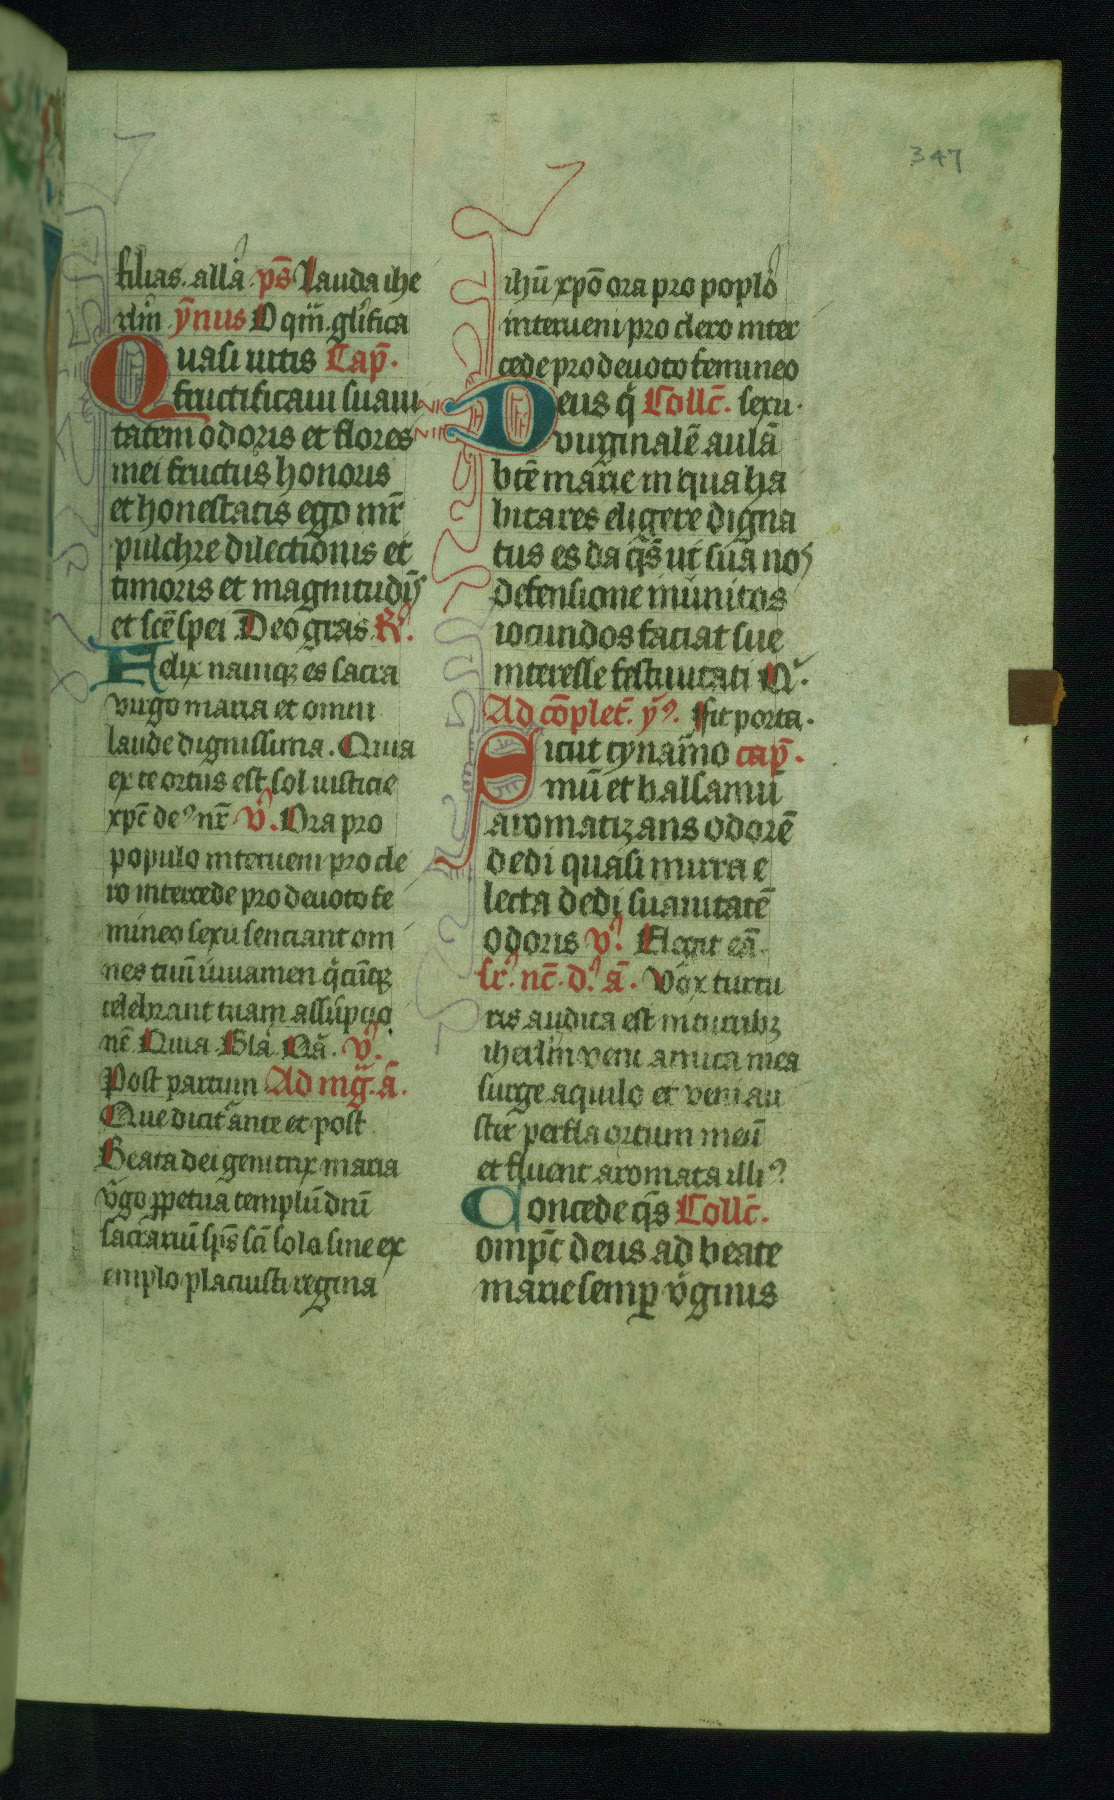 347
filias. alla ps Lauda ihe
rlm ȳnus O qm̄. glifica
Quasi uitis Cap̄.
fructificaui suaui
tatem odoris et flores
mei fructus honoris
et honestatis ego mr̄
pulchre dilectionis et
timoris et magnitudīs
et scē spei Deo gras R⁹.
Felix namqꝫ es sacra
virgo maria et omni
laude dignissima. Quia
ex te ortus est sol iusticie
xpc̄ de⁹ nr̄ v̉. Ora pro
populo interueni pro cle
ro intercede pro deuoto fe
mineo sexu senciant om
nes tuū iuuamen q̄cūqꝫ
celebrant tuam assūpcio
nē Quia Gla Qā. v̉.
Post partum Ad mḡ. ā.
Que dicit ante et post
Beata dei genitrix maria
v̉go ꝑpetua templū dnī
sacrariū sps̄ scī sola sine ex
emplo placuisti regina
ihū xpō ora pro poplo
interueni pro clero inter
cede pro deuoto femineo
Deus q̄ Collc̄. sexu.
virginalē aulā
btē marie in qua ha
bitares eligere digna
tus es da qs̄ ut sua nos
defensione munitos
iocundos faciat sue
interesse festiuitati Q̉.
Ad cōplet̄. y⁹. Fit porta.
Sicut cynamo cap̄.
mū et balsamū
aromatizans odorē
dedi quasi mirra e
lecta dedi suauitatē
odoris v̉. Elegit eā
sr̉. nc̄. d̉. ā. Vox turtu
ris audita est in turribꝫ
iherlm veni amica mea
surge aquilo et veni au
ster perfla ortum meū
et fluent aromata illi⁹
Concede qs̄ Collc̄.
ompc̄ deus ad beate
marie semꝑ v̉ginis